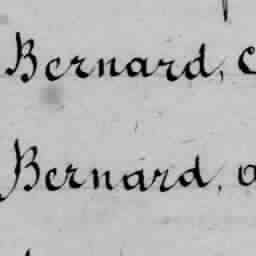 Bernard,
Bernard,